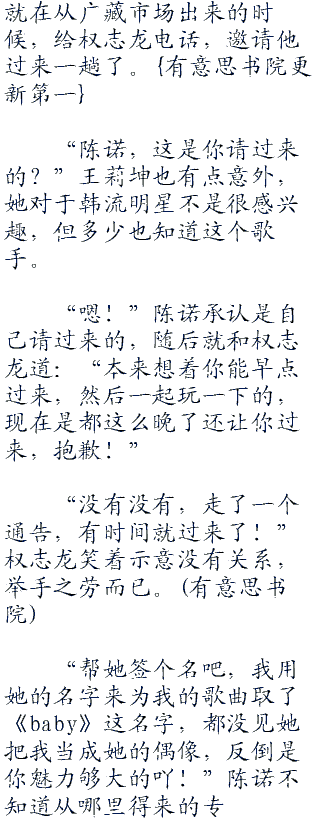 就在从广藏市场出来的时
候，给权志龙电话，邀请他
过来一趟了。{有意思书院更
新第一}
“陈诺，这是你请过来
的？”王莉坤也有点意外，
她对于韩流明星不是很感兴
趣，但多少也知道这个歌
手。
“嗯！”陈诺承认是自
己请过来的，随后就和权志
龙道：“本来想着你能早点
过来，然后一起玩一下的，
现在是都这么晚了还让你过
来，抱歉！”
“没有没有，走了一个
通告，有时间就过来了！”
权志龙笑着示意没有关系，
举手之劳而已。(有意思书
院)
“帮她签个名吧，我用
她的名字来为我的歌曲取了
《baby》这名字，都没见她
把我当成她的偶像，反倒是
你魅力够大的吖！”陈诺不
知道从哪里得来的专